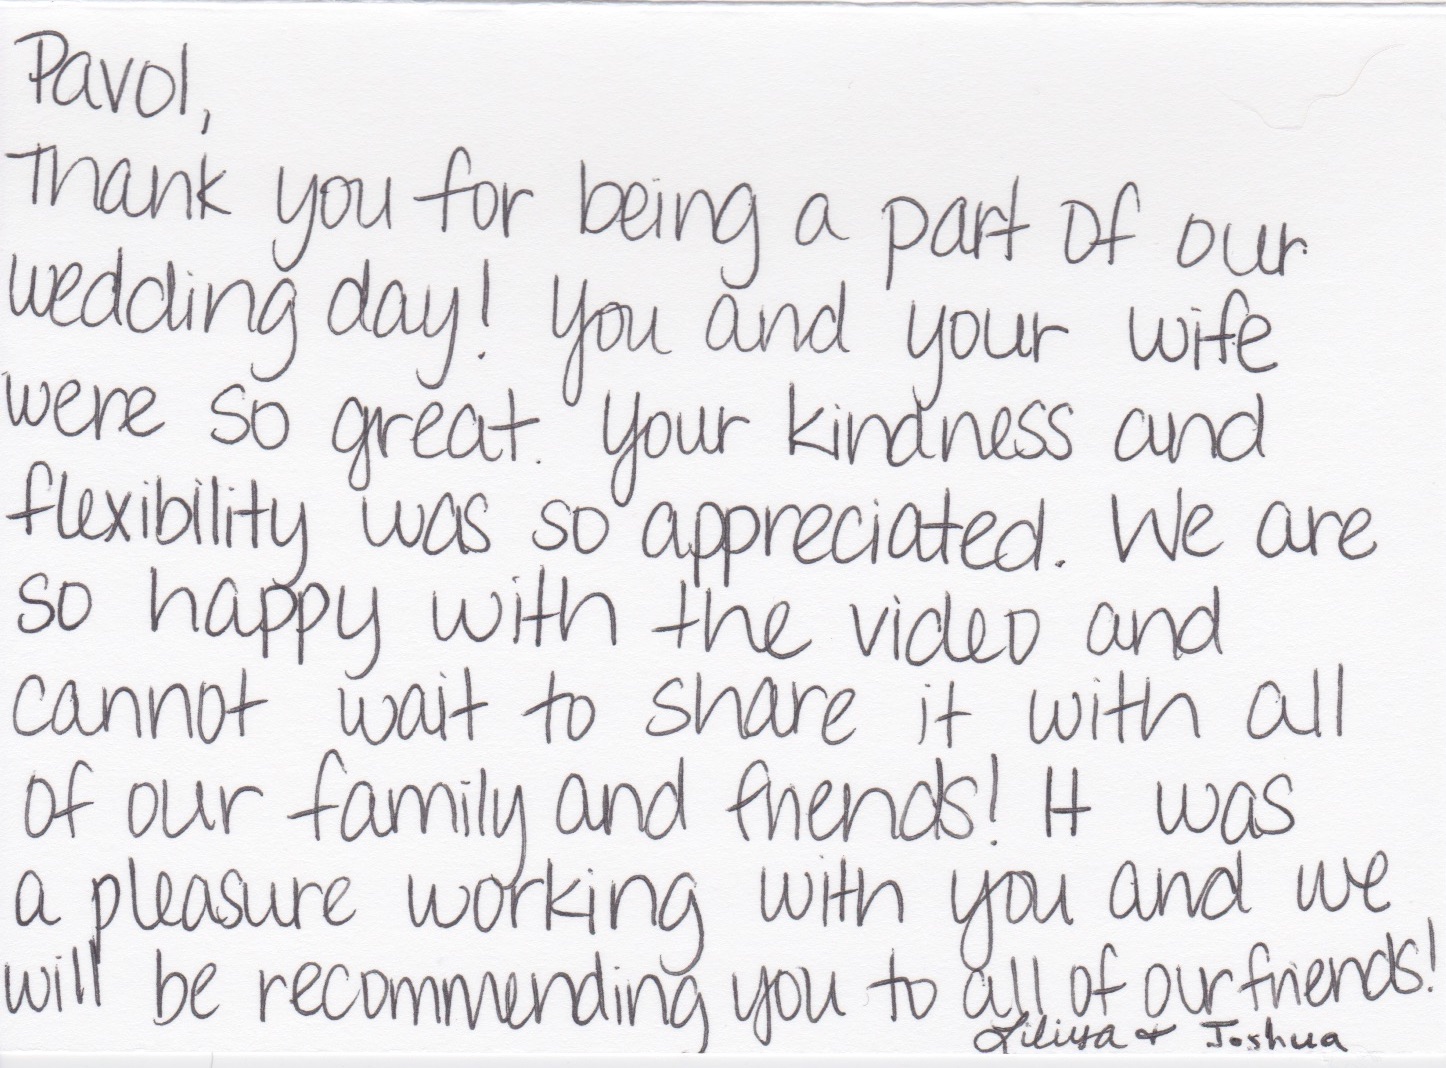 Pavol,
Thank you for being a part of our
wedding day! You and your wife
were so great. Your kindness and
flexibility was so appreciated. We are
so happy with the video and
cannot wait to share it with all
of our family and friends! It was
a pleasure working with you and we
will be recommending you to all of our friends!
& Joshua